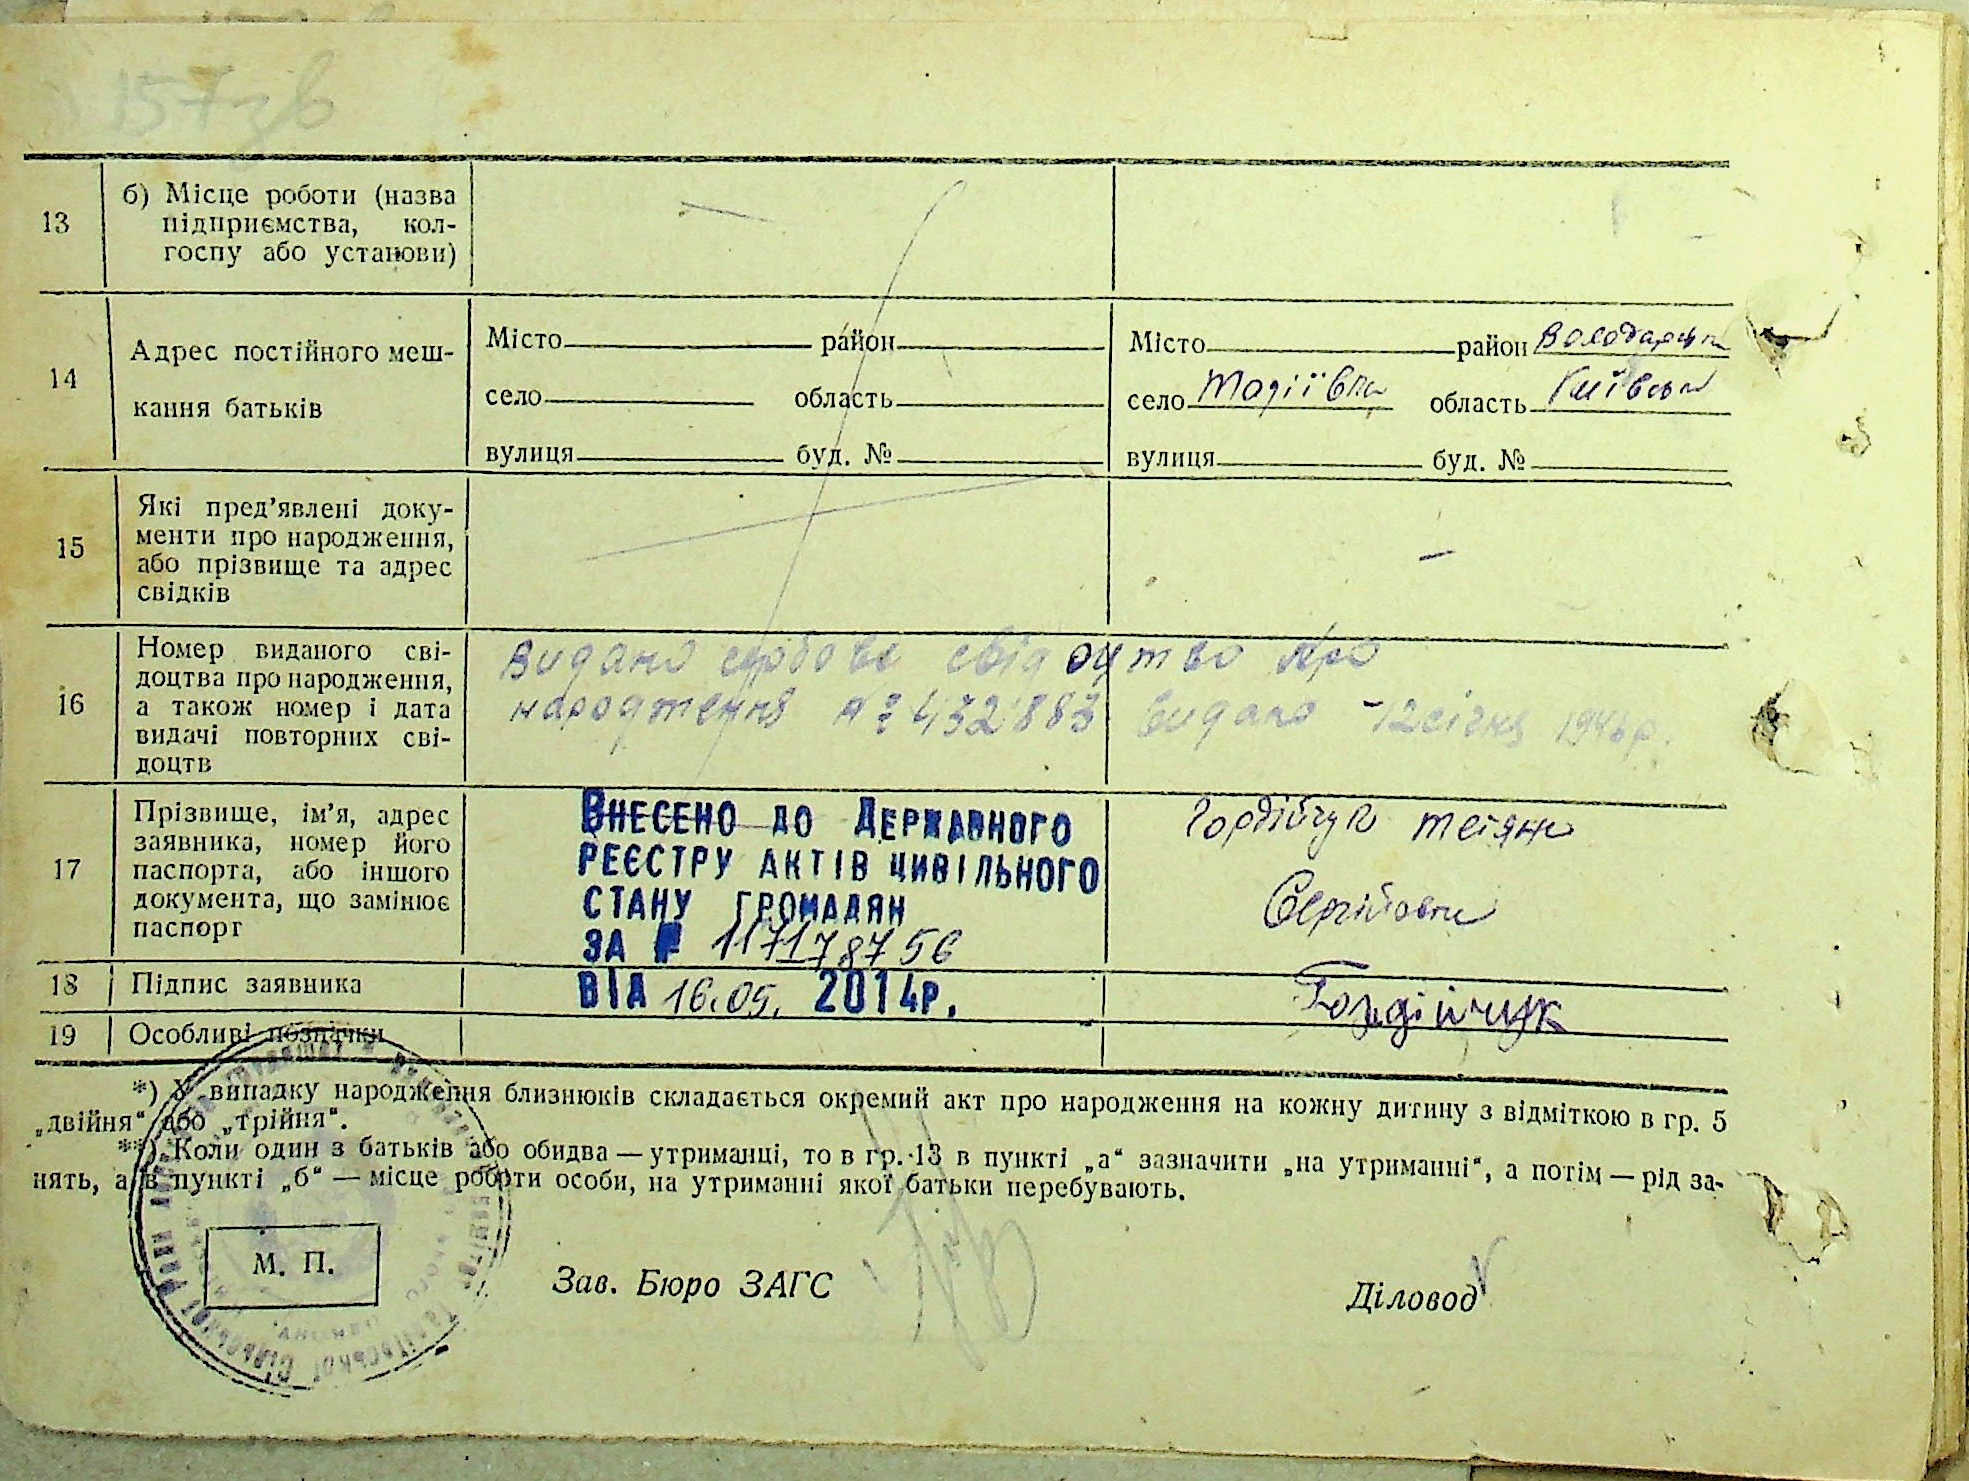 157зв
13
б) Місце роботи (назва
підприємства, кол-
госпу або установи)
14
Адрес постійного меш-
кання батьків
Місто район
село область
вулиця буд. №
Місто район Володарськ
село Тадіївка область Київськ
вулиця буд. №
15
Які пред’явлені доку-
менти про народження,
або прізвище та адрес
свідків
16
Номер виданого сві-
доцтва про народження,
а також номер і дата
видачі повторних сві-
доцтв
Видано свідоцтво про
народження № 432883 видано 12 січня 1946 р.
17
Прізвище, ім’я, адрес
заявника, номер його
паспорта, або іншого
документа, що замінює
паспорт
ВНЕСЕНО ДО ДЕРЖАВНОГО
РЕЄСТРУ АКТІВ ЦИВІЛЬНОГО
СТАНУ ГРОМАДЯН
ЗА № 117178756
ВІД 16.05. 2014р.
Гордійчук Тетяна
Сергіївна
18
Підпис заявника
Гордійчук
19
Особливі позначки
*) У випадку народження близнюків складається окремий акт про народження на кожну дитину з відміткою в гр. 5
„двійня“ або „трійня“.
**) Коли один з батьків або обидва — утриманці, то в гр. 13 в пункті „а“ зазначити „на утриманні“, а потім — рід за-
нять, а в пункті „б“ — місце роботи особи, на утриманні якої батьки перебувають.
М. П.
Зав. Бюро ЗАГС
Діловод